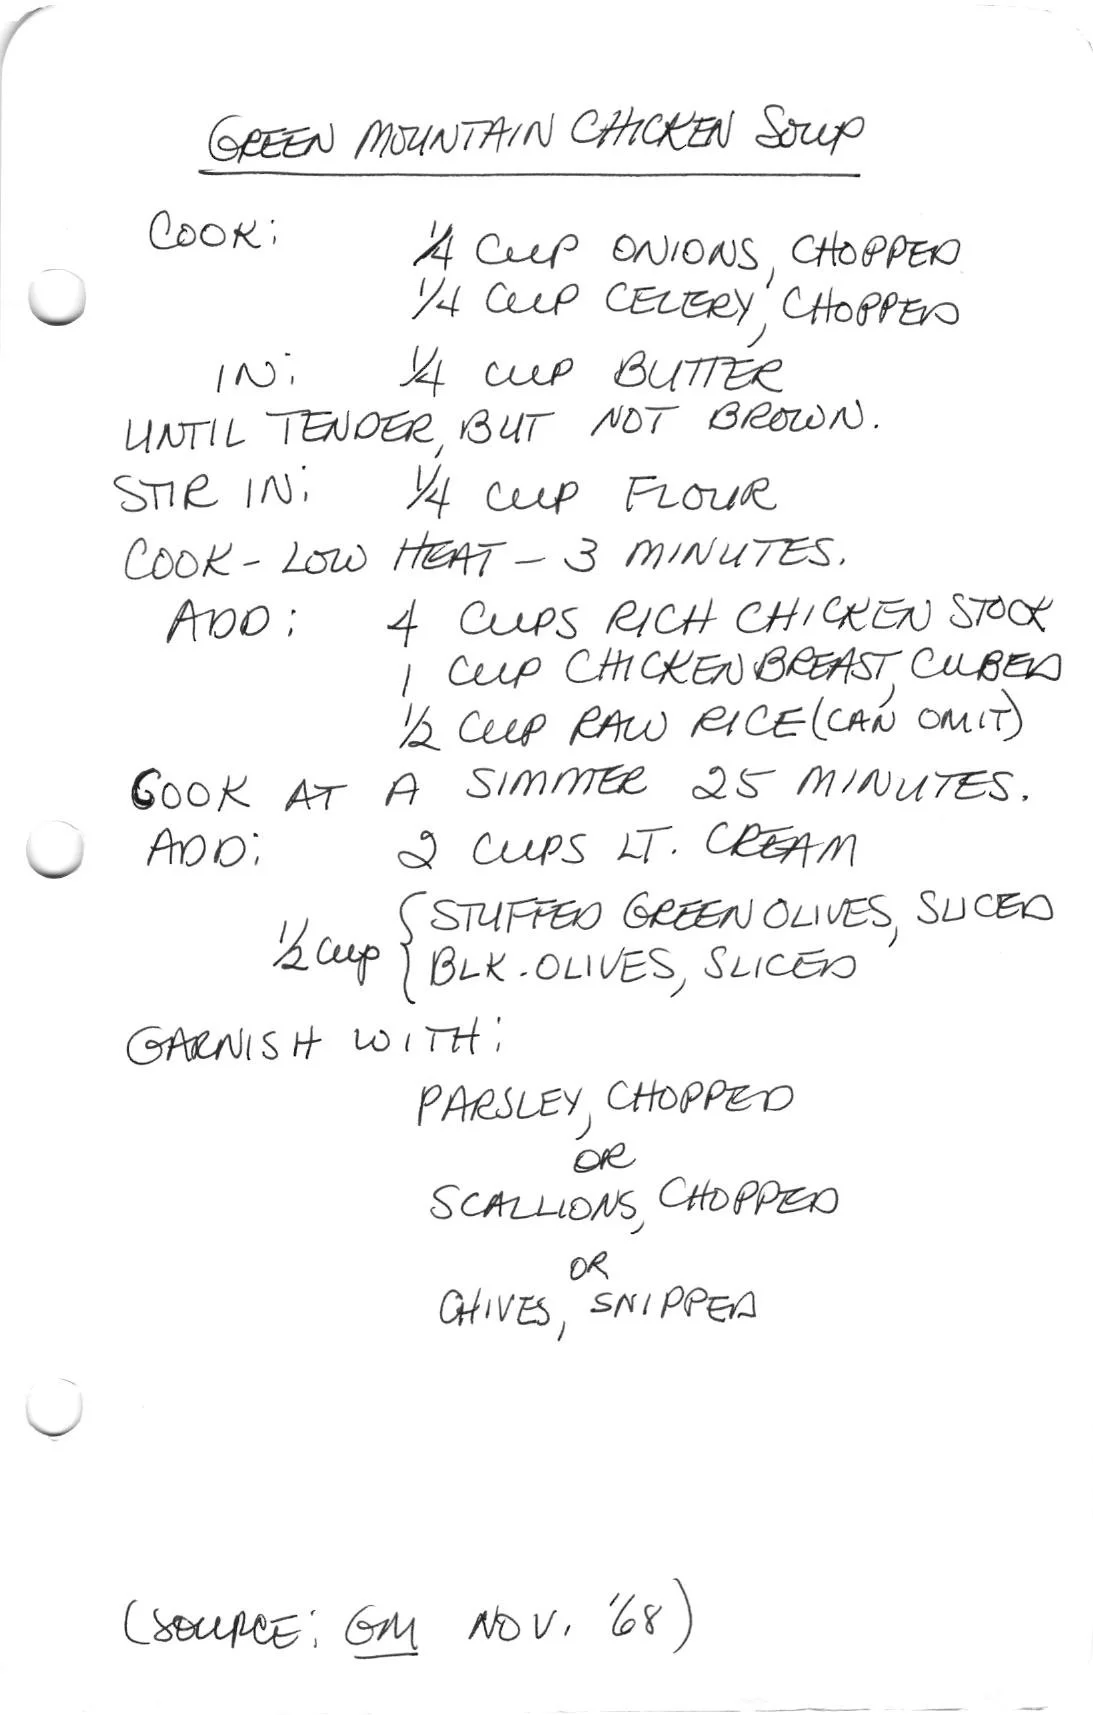 GREEN MOUNTAIN CHICKEN SOUP
COOK: 1/4 CUP ONIONS, CHOPPED
1/4 CUP CELERY, CHOPPED
IN: 1/4 CUP BUTTER
UNTIL TENDER, BUT NOT BROWN.
STIR IN: 1/4 CUP FLOUR
COOK - LOW HEAT - 3 MINUTES.
ADD: 4 CUPS RICH CHICKEN STOCK
1 CUP CHICKEN BREAST, CUBED
1/2 CUP RAW RICE (CAN OMIT)
COOK AT A SIMMER 25 MINUTES.
ADD: 2 CUPS LT. CREAM
1/2 CUP { STUFFED GREEN OLIVES, SLICED
BLK. OLIVES, SLICED
GARNISH WITH:
PARSLEY, CHOPPED
OR
SCALLIONS, CHOPPED
OR
CHIVES, SNIPPED
(SOURCE: GM NOV. '68)